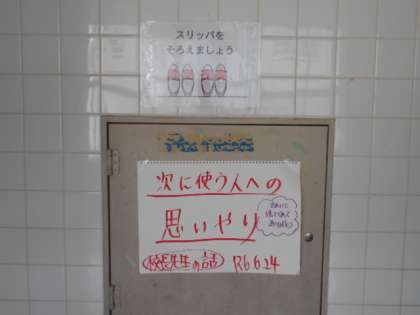 スリッパを
そろえましょう
次に使う人への
思いやり
校長先生の話 R6.6.24